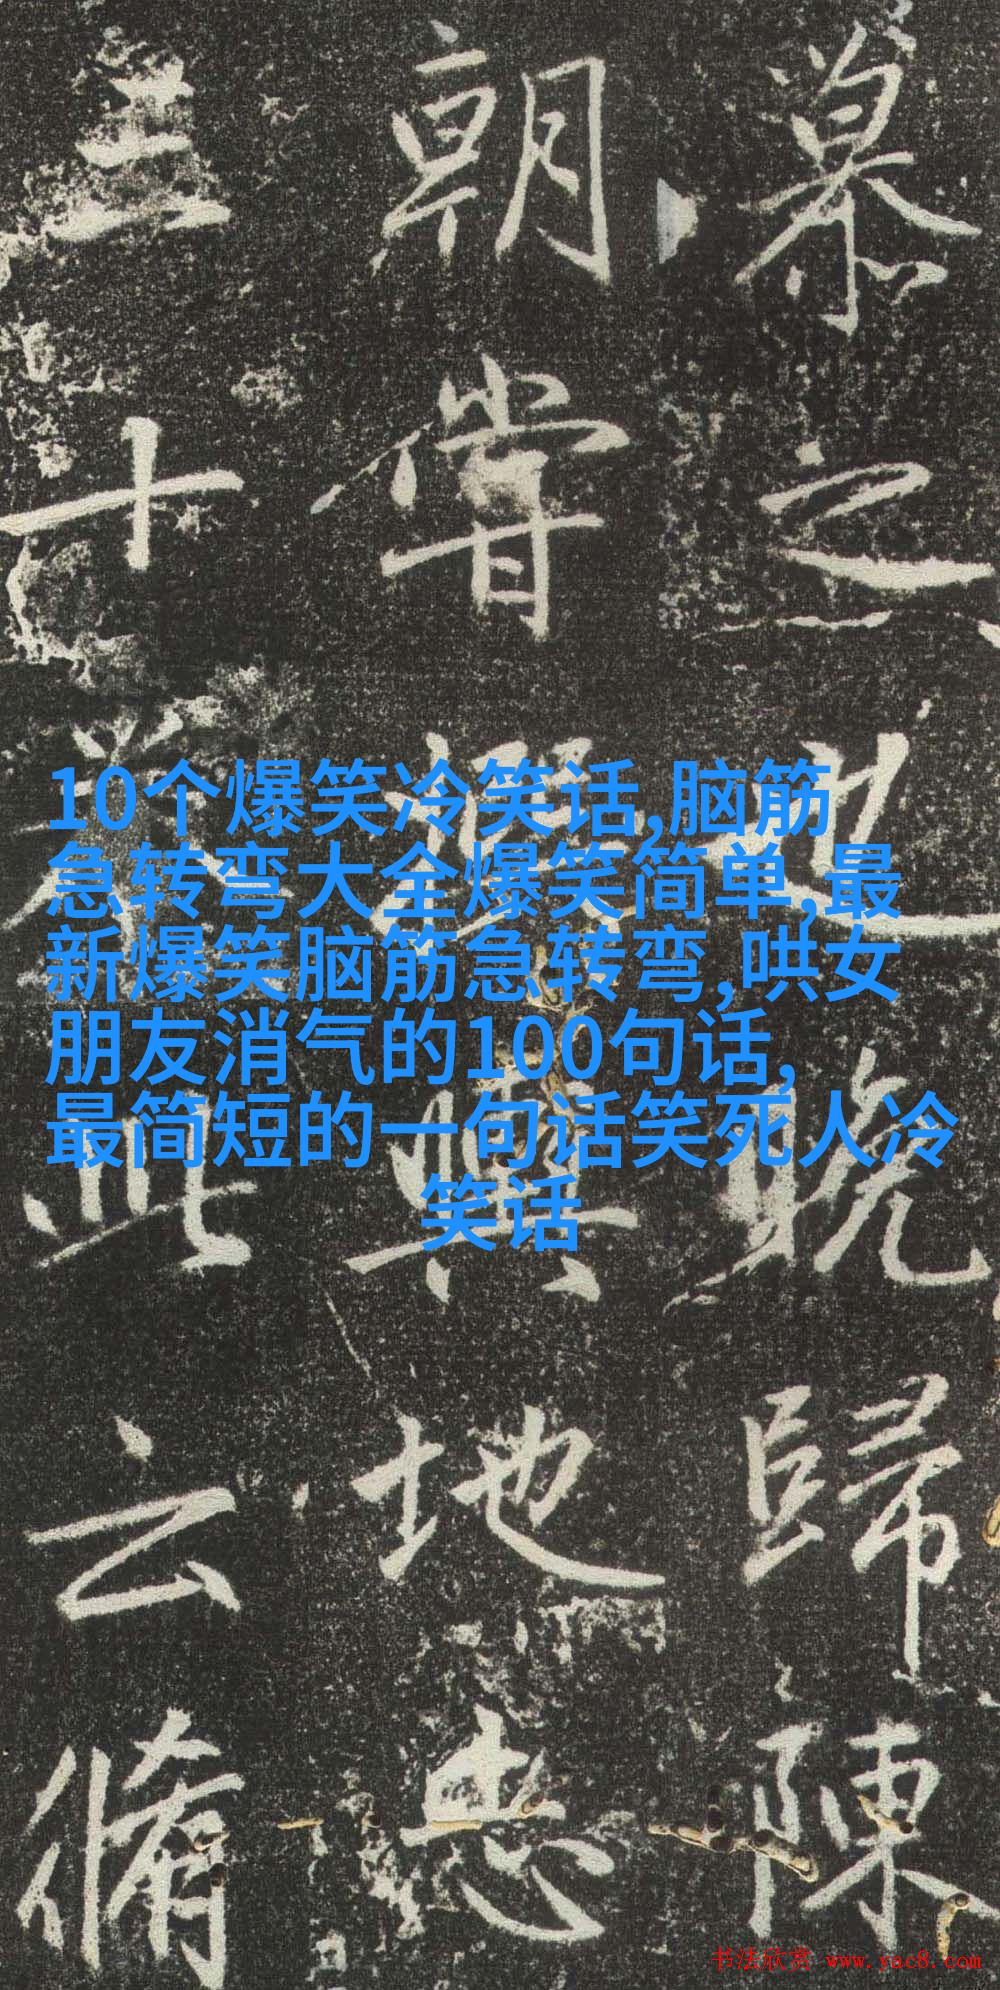 慕之也晚歸陳
朝嘗與地志
十此云脩
10个爆笑冷笑话,脑筋
急转弯大全爆笑简单,最
新爆笑脑筋急转弯,哄女
朋友消气的100句话,
最简短的一句话笑死人冷
笑话
书法欣赏 www.yac8.com